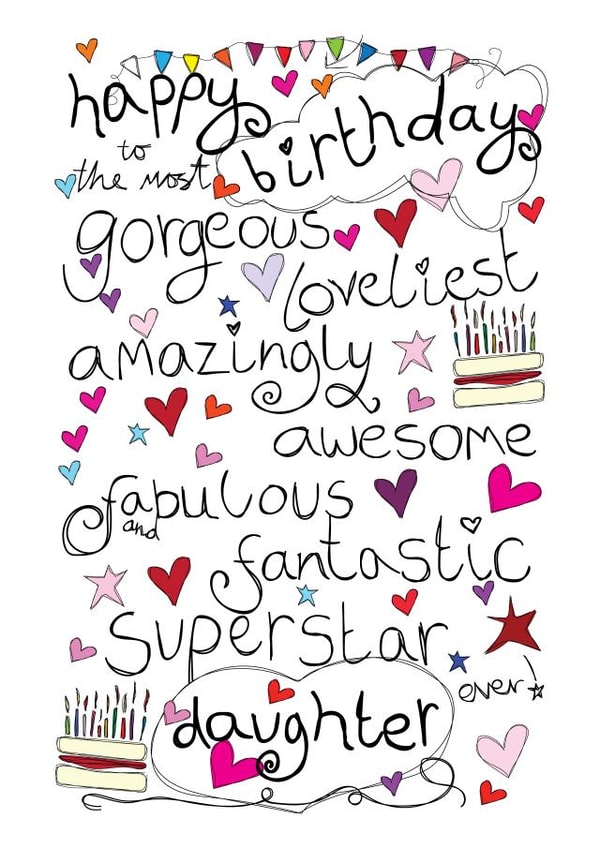 happy
birthday
to
the most
gorgeous
loveliest
amazingly
awesome
fabulous
and
fantastic
superstar
ever!
daughter